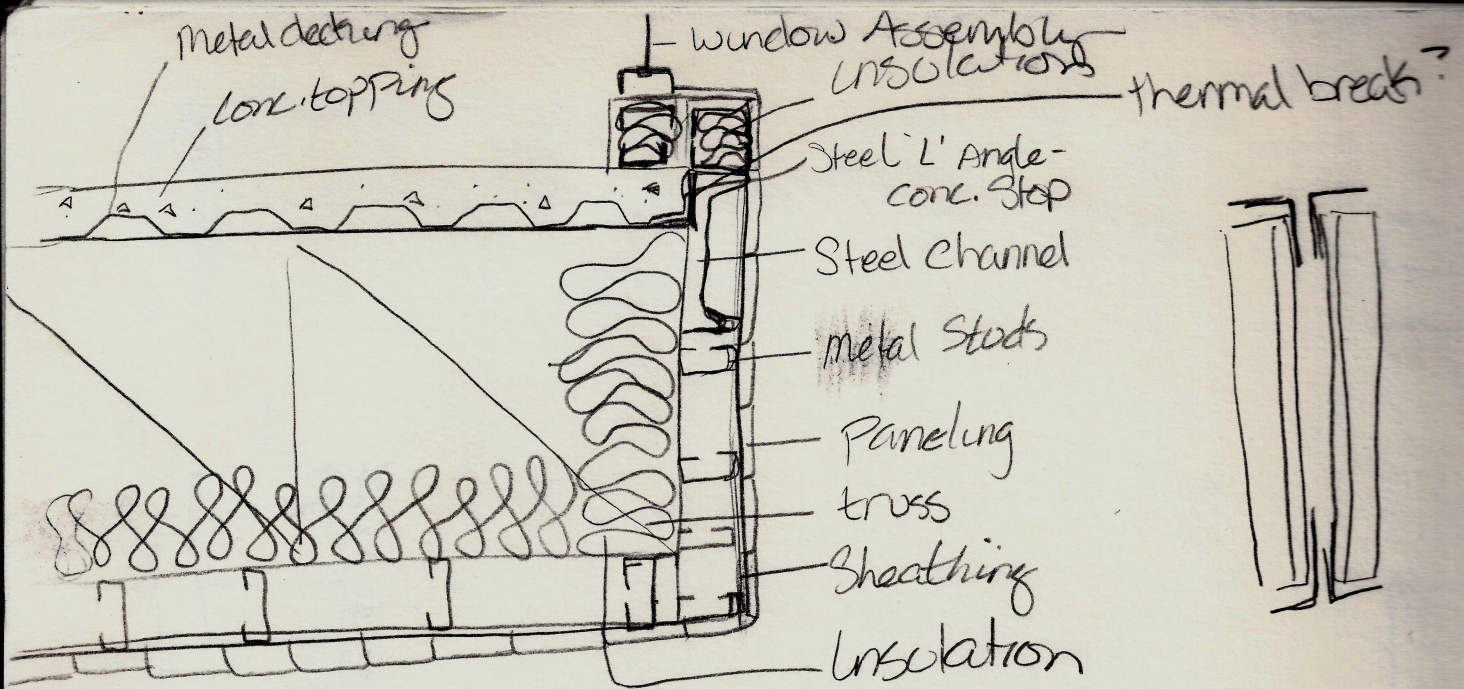 Metal decking
conc. topping
window Assembly
insulation
thermal break?
Steel 'L' Angle-
conc. Stop
Steel Channel
metal Studs
Paneling
truss
Sheathing
Insulation